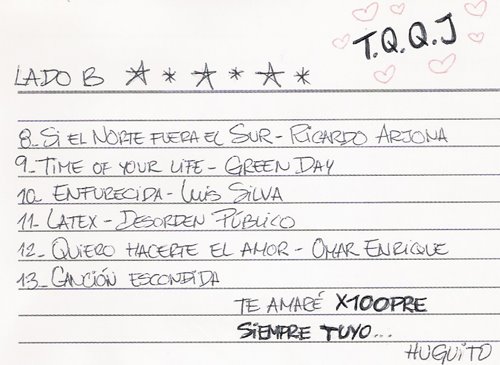 T.Q.Q.J
LADO B
8_ SI EL NORTE FUERA EL SUR - RICARDO ARJONA
9_ TIME OF YOUR LIFE - GREEN DAY
10_ ENFURECIDA - LUIS SILVA
11_ LATEX - DESORDEN PÚBLICO
12_ QUIERO HACERTE EL AMOR - OMAR ENRIQUE
13_ CANCIÓN ESCONDIDA
TE AMARÉ X100PRE
SIEMPRE TUYO...
HUGUITO